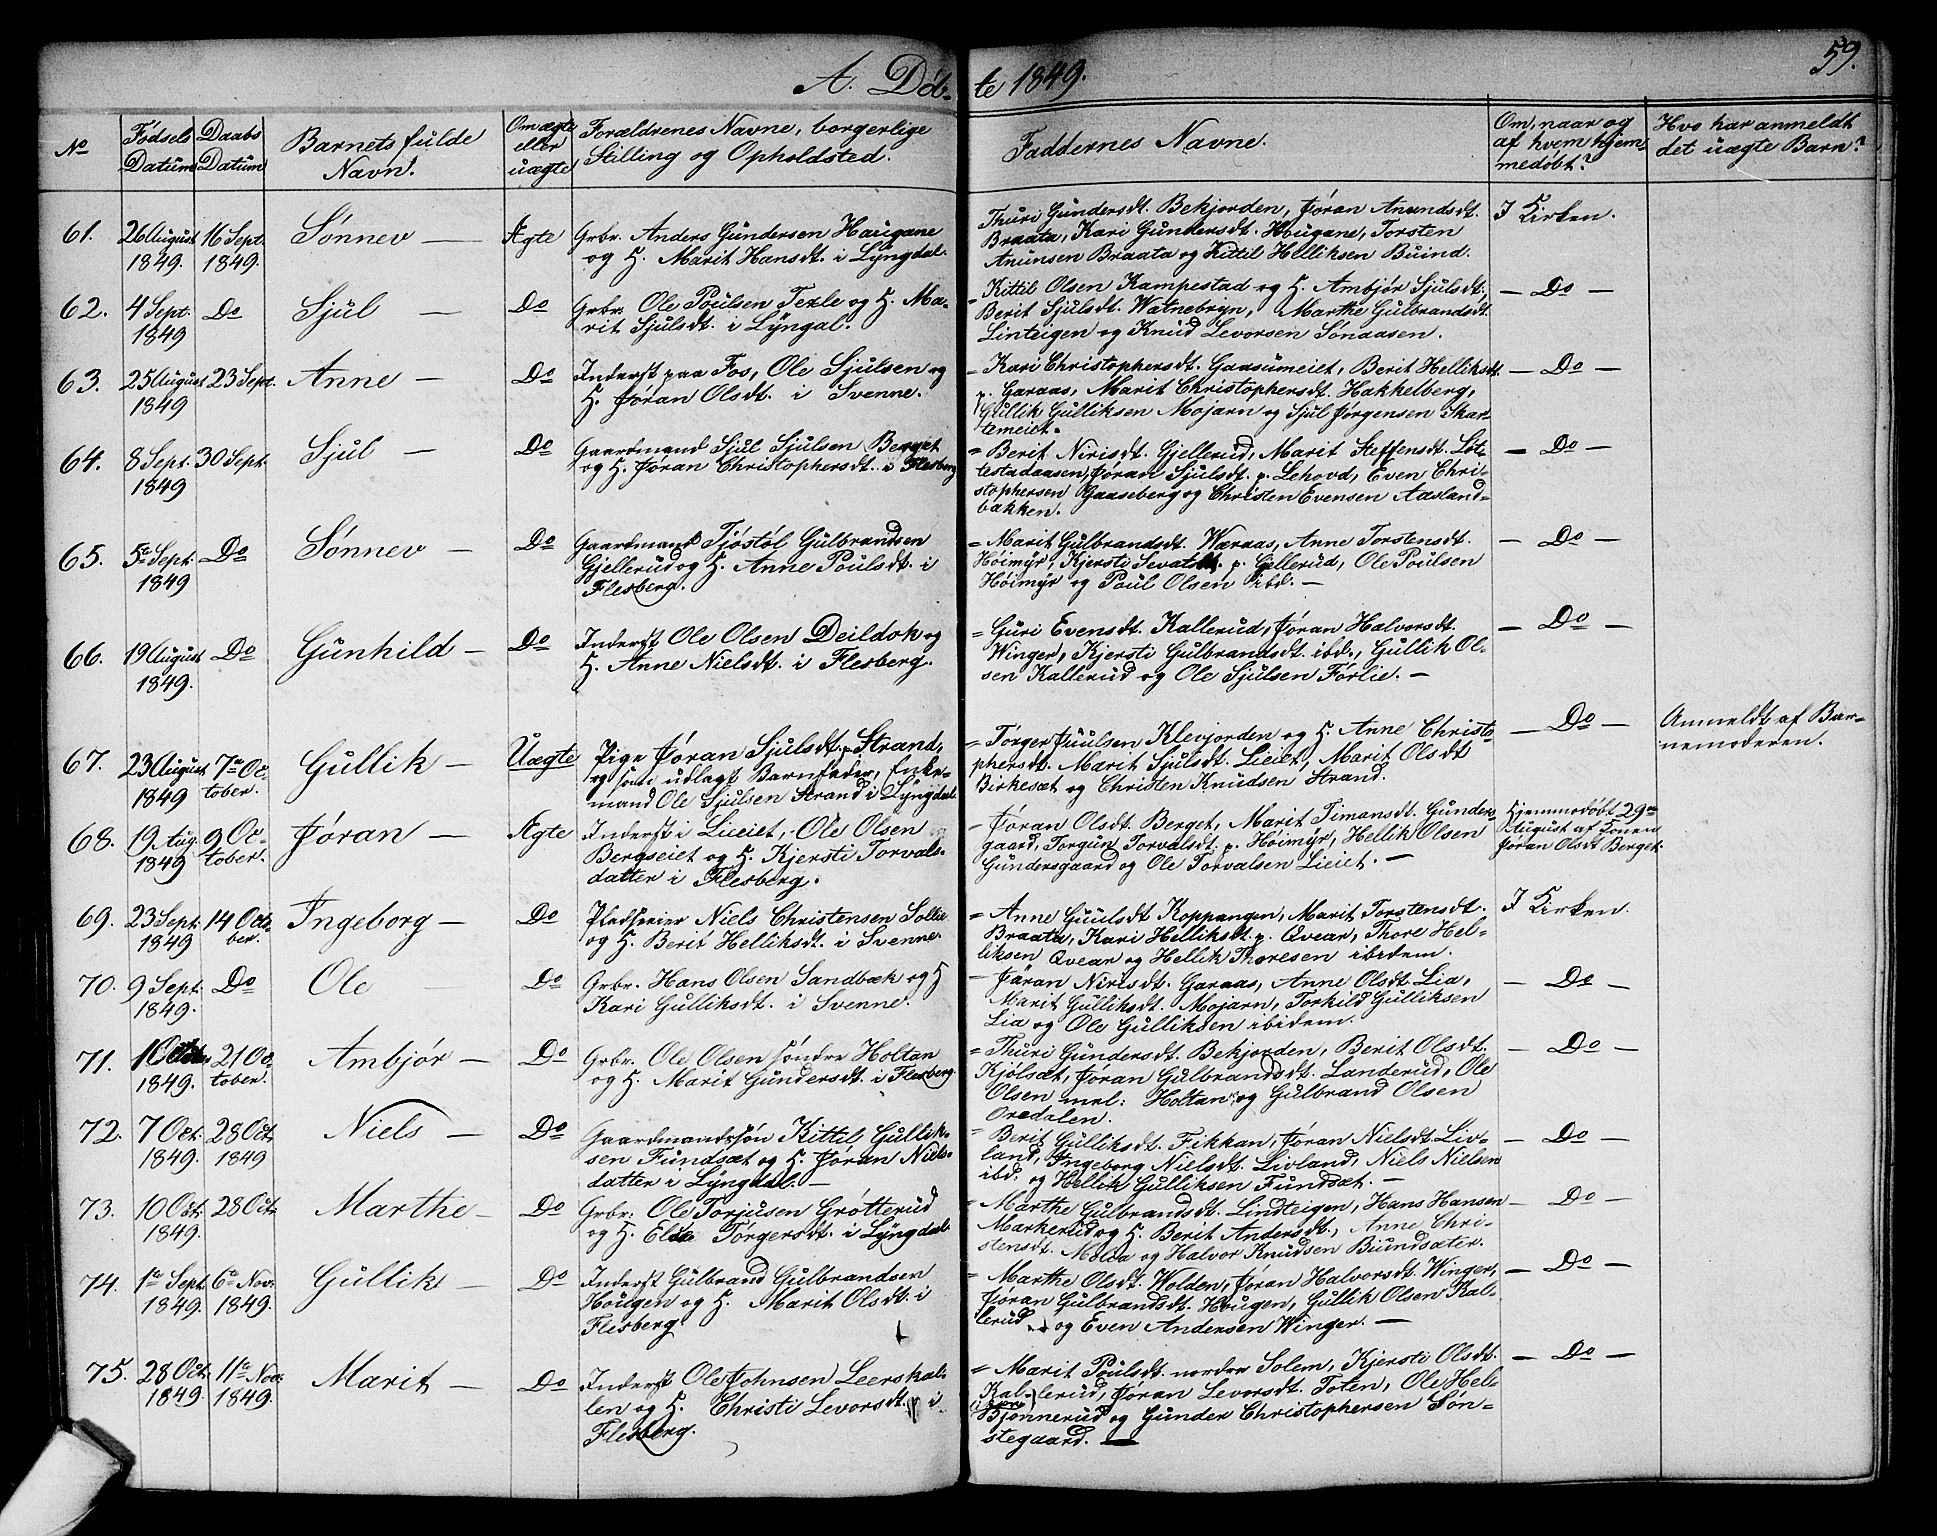 A. Døb-
te 1849.
59.
No
Fødsels Datum
Daabs Datum
Barnets fulde Navn.
Om ægte eller uægte
Forældrenes Navne, borgerlige Stilling og Opholdsted.
Faddernes Navne.
Om, naar og af hvem hjemmedøbt?
Hvo har anmeldt det uægte Barn?
61. 26 August 1849. 16 Sept. 1849. Sønnev — Ægte
Grbr. Anders Gundersen Haugane
og H. Marit Hansdt. i Lyngdal.
Thuri Gundersdt. Bekjorden, Jøran Anundsdt.
Braata, Kari Gundersdt. Hougane, Torsten
Anunsen Braata og Kittil Helliksen Buind.
I Kirken.
62. 4 Sept. 1849 Do Sjul — Do
Grbr. Ole Poulsen Texle og H. Ma-
rit Sjulsdt. i Lyngal.
= Kittil Olsen Kampestad og H. Ambjør Sjulsdt.
Berit Sjulsdt. Watnebryn, Marthe Gulbrandsdt.
Linteigen og Knud Levorsen Sønaasen.
— Do —
63. 25 August 1849 23 Sept. Anne — Do
Inderst paa Fos, Ole Sjulsen og
H. Jøran Olsdt. i Svenne.
= Kari Christophersdt. Gaasumeiet, Berit Helliksdt.
p. Garaas, Marit Christophersdt. Hakkelberg,
Gullik Gulliksen Mojarn og Sjul Jørgensen Skar-
temeiet.
— Do —
64. 8 Sept. 1849 30 Sept. Sjul — Do
Gaardmand Sjul Sjulsen Berget
og H. Jøran Christophersdt. i Flesberg
= Berit Nirisdt. Gjellerud, Marit Steffensdt. Løt-
testadaasen, Jøran Sjulsdt. p. Lehovd, Even Chri-
stophersen Gaaseberg og Christen Evensen Aasland-
bakken.
— Do —
65. 5te Sept. 1849 Do Sønnev — Do
Gaardmand Tjøstøl Gulbrandsen
Gjellerud og H. Anne Poulsdt. i
Flesberg.
= Marit Gulbrandsdt. Weraas, Anne Torstensdt.
Høimyr, Kjersti Sevatsdt. p. Gjellerud, Ole Poulsen
Høimyr og Poul Olsen ibd. —
— Do —
66. 19 August 1849. Do Gunhild — Do
Inderst Ole Olsen Deildok og
H. Anne Nielsdt. i Flesberg.
= Guri Evensdt. Kallerud, Jøran Halvorsdt.
Winger, Kjersti Gulbrandsdt. ibd., Gullik Ol-
sen Kallerud og Ole Sjulsen Førlie. —
— Do —
67. 23 August 1849 7de October. Gullik — Uægte
Pige Jøran Sjulsdt. p. Strand,
og som udlagt Barnfader, Enke-
mand Ole Sjulsen Strand i Lyngdal.
= Torger Juulsen Klevjorden og H. Anne Christo-
phersdt. Marit Sjulsdt. Lieiet, Marit Olsdt
Birkesæt og Christen Knudsen Strand.
— Do —
Anmeldt af Bar-
nemoderen.
68. 19 Aug. 1849 9 October. Jøran — Ægte
Inderst i Lieiet, Ole Olsen
Bergseiet og H. Kjersti Torvals-
datter i Flesberg.
— Jøran Olsdt. Berget, Marit Timansdt. Gunders-
gaard, Torgun Torvalsdt. p. Høimyr, Hellik Olsen
Gundersgaard og Ole Torvalsen Lieiet. —
Hjemmedøbt 29de
August af Konen
Jøran Olsdt Berget.
69. 23 Sept. 1849 14 October. Ingeborg — Do
Pladseeier Niels Christensen Sollie
og H. Berit Helliksdt. i Svenne.
= Anne Guulsdt Koppangen, Marit Torstensdt.
Braata, Kari Helliksdt. p. Qvear, Thore Hel-
liksen Qvear og Hellik Thoresen ibidem.
I Kirken.
70. 9 Sept. 1849. Do Ole — Do
Grbr. Hans Olsen Sandbæk og H
Kari Gulliksdt. i Svenne.
— Jøran Nirisdt. Garaas, Anne Olsdt. Lia,
Marit Gulliksdt. Mojarn, Torkild Gulliksen
Lia og Ole Gulliksen ibidem.
— Do —
71. 1 Octbr 1849. 21 October. Ambjør — Do
Grbr. Ole Olsen søndre Holtan
og H. Marit Gundersdt. i Flesberg.
= Thuri Gundersdt. Bekjorden, Berit Olsdt.
Kjølsæt, Jøran Gulbrandsdt. Landerud, Ole
Olsen mel: Holtan og Gulbrand Olsen
Oredalen.
— Do —
72. 7 Oct. 1849. 28 Oct. 1849 Niels — Do
Gaardmandssøn Kittil Gullik-
sen Fundsæt og H. Jøran Niels-
datter i Lyngdal. —
= Berit Gulliksdt. Fikkan, Jøran Nielsdt. Liv-
land, Ingeborg Nielsdt. Livland, Niels Nielsen
ibd. og Hellik Gulliksen Fundsæt. —
— Do —
73. 10 Oct. 1849. 28 Oct. Marthe — Do
Grbr. Ole Torjusen Grøtterud
og H. Elsie Torgersdt. i Lyngdal.
= Marthe Gulbrandsdt. Lindteigen, Hans Hansen
Markerud og H. Berit Andersdt., Anne Chri-
stensdt. Molda og Halvor Knudsen Buindsæter.
— Do —
74. 1te Sept. 1849. 6te Nov. 1849. Gullik — Do
Inderst Gulbrand Gulbrandsen
Hougen og H. Marit Olsdt. i
Flesberg.
= Marthe Olsdt. Wolden, Jøran Halvorsdt. Winger,
Jøran Gulbrandsdt. Hougen, Gullik Olsen Kal-
lerud og Even Andersen Winger. —
— Do —
75. 28 Oct. 1849. 11te Nov. 1849. Marit — Do
Inderst Ole Johnsen Leerskal-
len og H. Christi Levorsdt. i
Flesberg.
= Marit Poulsdt. nordre Solem, Kjersti Olsdt.
Kallerud, Jøran Levorsdt. Toten, Ole Hel-
Bjønnerud og Gunder Christophersen Søn-
stegaard. —
— Do —